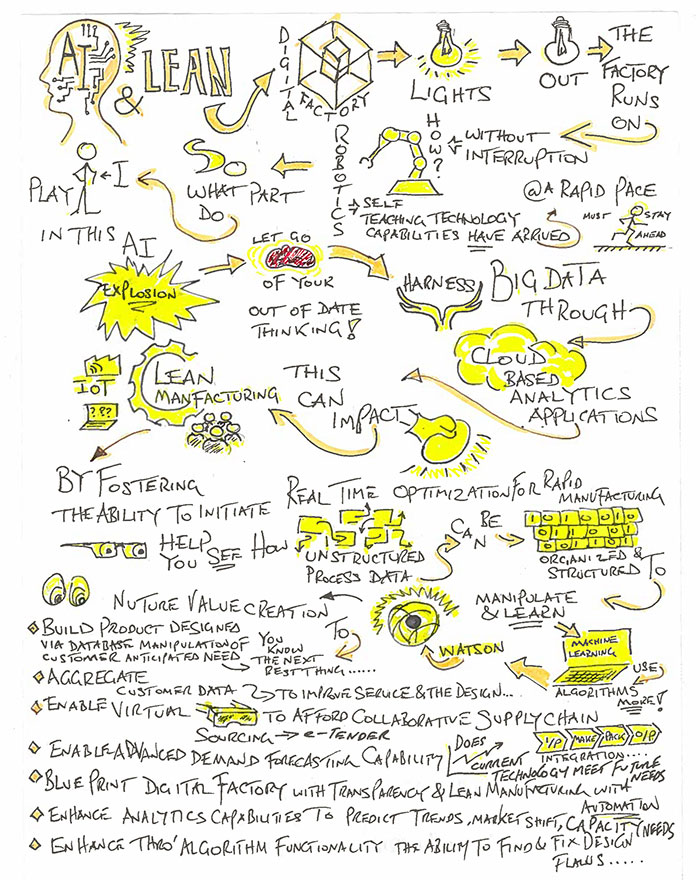 AI
& LEAN
DIGITAL
FACTORY
LIGHTS
OUT
THE
FACTORY
RUNS
ON
ROBOTICS
HOW?
WITHOUT
INTERRUPTION
@ A RAPID PACE
MUST STAY
AHEAD
SELF
TEACHING TECHNOLOGY
CAPABILITIES HAVE ARRIVED
SO
WHAT PART
DO
I
PLAY
IN THIS
AI
EXPLOSION
LET GO
OF YOUR
OUT OF DATE
THINKING!
HARNESS
BIG DATA
THROUGH
CLOUD
BASED
ANALYTICS
APPLICATIONS
THIS
CAN
IMPACT
LEAN
MANFACTURING
IOT
???
BY FOSTERING
THE ABILITY TO INITIATE
REAL TIME OPTIMIZATION FOR RAPID
MANUFACTURING
HELP
YOU SEE HOW
UNSTRUCTURED
PROCESS DATA
CAN
BE
1011010
ORGANIZED &
STRUCTURED TO
MANIPULATE
& LEARN
MACHINE
LEARNING
USE
ALGORITHMS
MORE!
WATSON
TO
NUTURE VALUE CREATION
BUILD PRODUCT DESIGNED
VIA DATABASE MANIPULATION OF
CUSTOMER ANTICIPATED NEED
YOU
KNOW
THE NEXT
BEST THING......
AGGREGATE
CUSTOMER DATA TO IMPROVE SERVICE & THE DESIGN...
ENABLE VIRTUAL TO AFFORD COLLABORATIVE SUPPLY CHAIN
SOURCING e-TENDER
I/P MAKE PACK O/P
INTEGRATION....
ENABLE ADVANCED DEMAND FORECASTING CAPABILITY
DOES
CURRENT
TECHNOLOGY MEET FUTURE
NEEDS
BLUE PRINT DIGITAL FACTORY WITH TRANSPARENCY & LEAN MANUFACTURING WITH
AUTOMATION
ENHANCE ANALYTICS CAPABILITIES TO PREDICT TRENDS, MARKET SHIFT, CAPACITY NEEDS
ENHANCE THRO' ALGORITHM FUNCTIONALITY THE ABILITY TO FIND & FIX DESIGN
FLAWS.....